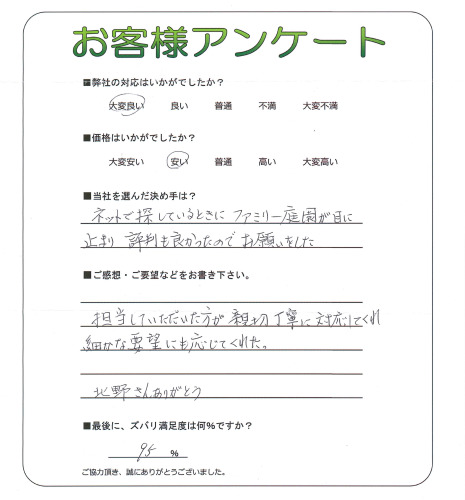 お客様アンケート
■弊社の対応はいかがでしたか？
大変良い 良い 普通 不満 大変不満
■価格はいかがでしたか？
大変安い 安い 普通 高い 大変高い
■当社を選んだ決め手は？
ネットで探しているときに ファミリー庭園が目に
止まり 評判も良かったので お願いをした
■ご感想・ご要望などをお書き下さい。
担当していただいた方が 親切 丁寧に 対応してくれ
細かな要望にも応じてくれた。
北野さんありがとう
■最後に、ズバリ満足度は何％ですか？
95 ％
ご協力頂き、誠にありがとうございました。